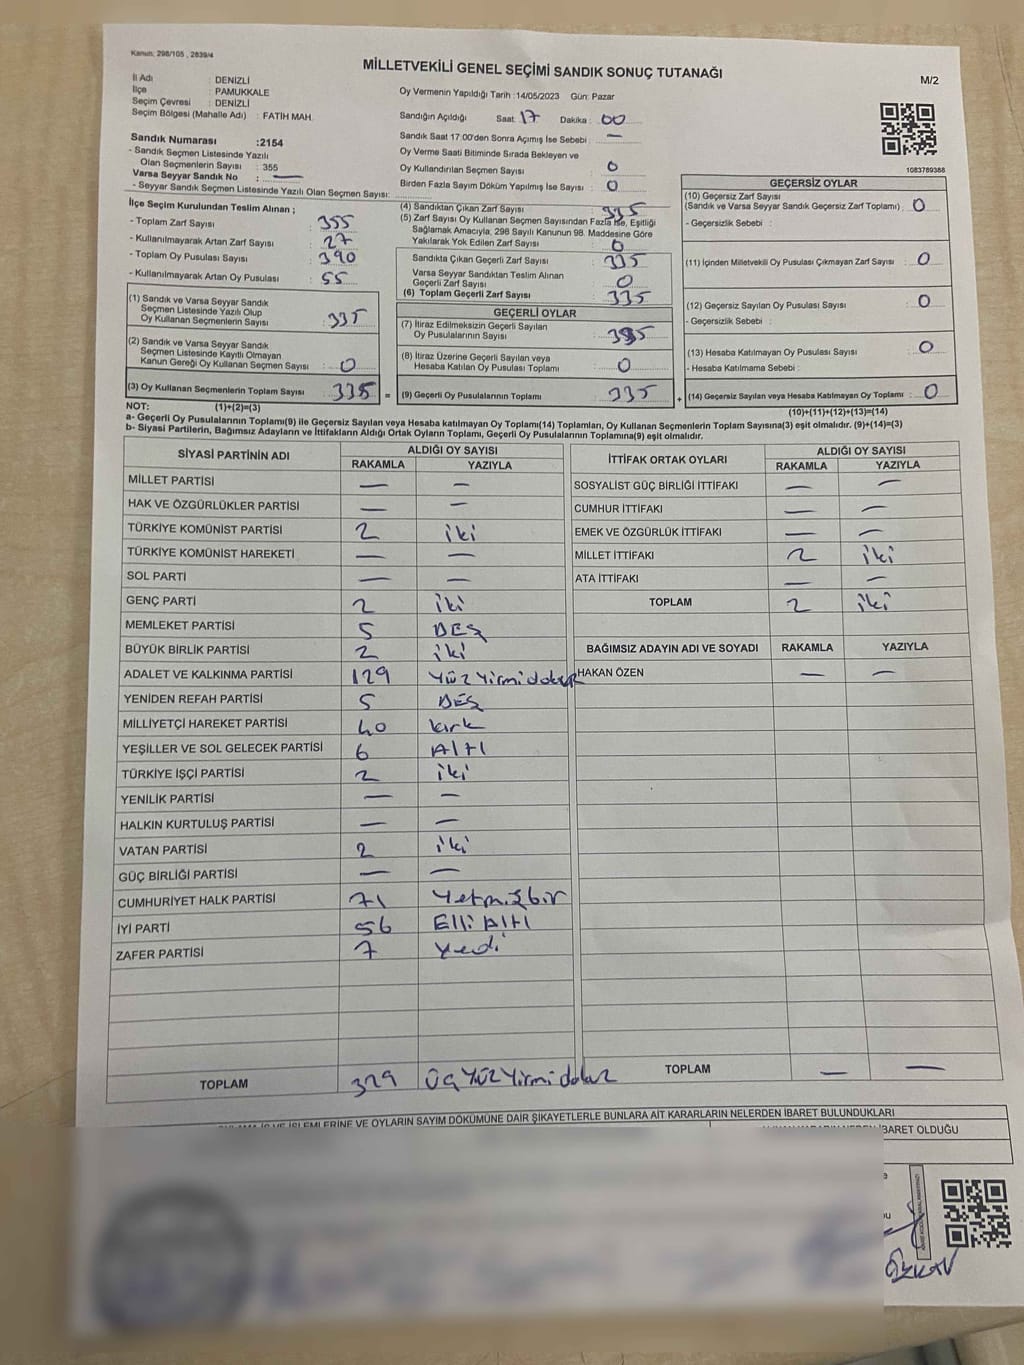 Kanun: 298/105 , 2839/4
MİLLETVEKİLİ GENEL SEÇİMİ SANDIK SONUÇ TUTANAĞI
M/2
İl Adı : DENİZLİ
İlçe : PAMUKKALE
Seçim Çevresi : DENİZLİ
Seçim Bölgesi (Mahalle Adı) : FATİH MAH.
Sandık Numarası :2154
- Sandık Seçmen Listesinde Yazılı
Olan Seçmenlerin Sayısı : 355
Varsa Seyyar Sandık No : —
- Seyyar Sandık Seçmen Listesinde Yazılı Olan Seçmen Sayısı:
Oy Vermenin Yapıldığı Tarih :14/05/2023 Gün: Pazar
Sandığın Açıldığı Saat: 17 Dakika : 00
Sandık Saat 17:00'den Sonra Açımış İse Sebebi : —
Oy Verme Saati Bitiminde Sırada Bekleyen ve
Oy Kullandırılan Seçmen Sayısı : 0
Birden Fazla Sayım Döküm Yapılmış İse Sayısı : 0
1083789388
İlçe Seçim Kurulundan Teslim Alınan ;
- Toplam Zarf Sayısı : 355
- Kullanılmayarak Artan Zarf Sayısı : 27
- Toplam Oy Pusulası Sayısı : 390
- Kullanılmayarak Artan Oy Pusulası : 55
(1) Sandık ve Varsa Seyyar Sandık
Seçmen Listesinde Yazılı Olup
Oy Kullanan Seçmenlerin Sayısı : 335
(2) Sandık ve Varsa Seyyar Sandık
Seçmen Listesinde Kayıtlı Olmayan
Kanun Gereği Oy Kullanan Seçmen Sayısı : 0
(3) Oy Kullanan Seçmenlerin Toplam Sayısı : 335 =
(4) Sandıktan Çıkan Zarf Sayısı : 335
(5) Zarf Sayısı Oy Kullanan Seçmen Sayısından Fazla İse, Eşitliği
Sağlamak Amacıyla, 298 Sayılı Kanunun 98. Maddesine Göre
Yakılarak Yok Edilen Zarf Sayısı : 0
Sandıkta Çıkan Geçerli Zarf Sayısı : 335
Varsa Seyyar Sandıktan Teslim Alınan
Geçerli Zarf Sayısı : 0
(6) Toplam Geçerli Zarf Sayısı : 335
GEÇERLİ OYLAR
(7) İtiraz Edilmeksizin Geçerli Sayılan
Oy Pusulalarının Sayısı : 335
(8) İtiraz Üzerine Geçerli Sayılan veya
Hesaba Katılan Oy Pusulası Toplamı : 0
(9) Geçerli Oy Pusulalarının Toplamı : 335 +
GEÇERSİZ OYLAR
(10) Geçersiz Zarf Sayısı
(Sandık ve Varsa Seyyar Sandık Geçersiz Zarf Toplamı) : 0
- Geçersizlik Sebebi :
(11) İçinden Milletvekili Oy Pusulası Çıkmayan Zarf Sayısı : 0
(12) Geçersiz Sayılan Oy Pusulası Sayısı : 0
- Geçersizlik Sebebi :
(13) Hesaba Katılmayan Oy Pusulası Sayısı : 0
- Hesaba Katılmama Sebebi :
(14) Geçersiz Sayılan veya Hesaba Katılmayan Oy Toplamı : 0
NOT: (1)+(2)=(3) (10)+(11)+(12)+(13)=(14)
a- Geçerli Oy Pusulalarının Toplamı(9) ile Geçersiz Sayılan veya Hesaba katılmayan Oy Toplamı(14) Toplamları, Oy Kullanan Seçmenlerin Toplam Sayısına(3) eşit olmalıdır. (9)+(14)=(3)
b- Siyasi Partilerin, Bağımsız Adayların ve İttifakların Aldığı Ortak Oyların Toplamı, Geçerli Oy Pusulalarının Toplamına(9) eşit olmalıdır.
SİYASİ PARTİNİN ADI ALDIĞI OY SAYISI
RAKAMLA YAZIYLA
MİLLET PARTİSİ — —
HAK VE ÖZGÜRLÜKLER PARTİSİ — —
TÜRKİYE KOMÜNİST PARTİSİ 2 iki
TÜRKİYE KOMÜNİST HAREKETİ — —
SOL PARTİ — —
GENÇ PARTİ 2 iki
MEMLEKET PARTİSİ 5 BEŞ
BÜYÜK BİRLİK PARTİSİ 2 iki
ADALET VE KALKINMA PARTİSİ 129 Yüz Yirmi dokuz
YENİDEN REFAH PARTİSİ 5 BEŞ
MİLLİYETÇİ HAREKET PARTİSİ 40 kırk
YEŞİLLER VE SOL GELECEK PARTİSİ 6 Altı
TÜRKİYE İŞÇİ PARTİSİ 2 iki
YENİLİK PARTİSİ — —
HALKIN KURTULUŞ PARTİSİ — —
VATAN PARTİSİ 2 iki
GÜÇ BİRLİĞİ PARTİSİ — —
CUMHURİYET HALK PARTİSİ 71 Yetmişbir
İYİ PARTİ 56 Elli Altı
ZAFER PARTİSİ 7 Yedi
TOPLAM 329 Üç Yüz Yirmi dokuz
İTTİFAK ORTAK OYLARI ALDIĞI OY SAYISI
RAKAMLA YAZIYLA
SOSYALİST GÜÇ BİRLİĞİ İTTİFAKI — —
CUMHUR İTTİFAKI — —
EMEK VE ÖZGÜRLÜK İTTİFAKI — —
MİLLET İTTİFAKI 2 iki
ATA İTTİFAKI — —
TOPLAM 2 iki
BAĞIMSIZ ADAYIN ADI VE SOYADI RAKAMLA YAZIYLA
HAKAN ÖZEN — —
TOPLAM — —
İŞLEMLERİNE VE OYLARIN SAYIM DÖKÜMÜNE DAİR ŞİKAYETLERLE BUNLARA AİT KARARLARIN NELERDEN İBARET BULUNDUKLARI
İBARET OLDUĞU
ÖZKAN